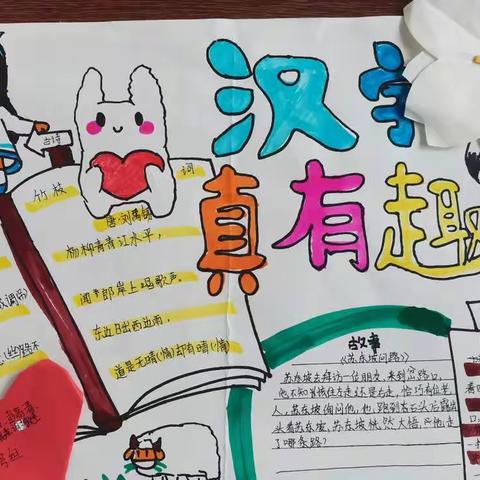 汉字
真有趣
古诗
竹枝词
唐·刘禹锡
杨柳青青江水平,
闻郎岸上唱歌声。
东边日出西边雨,
道是无晴(情)却有晴(情)
故事
《苏东坡问路》
苏东坡去拜访一位朋友,来到岔路口,
他不知该往左走还是右走,恰巧有位老
人,苏东坡询问他,他跑到大石头后露出
头看苏东坡,苏东坡恍然大悟,他走
了哪条路?